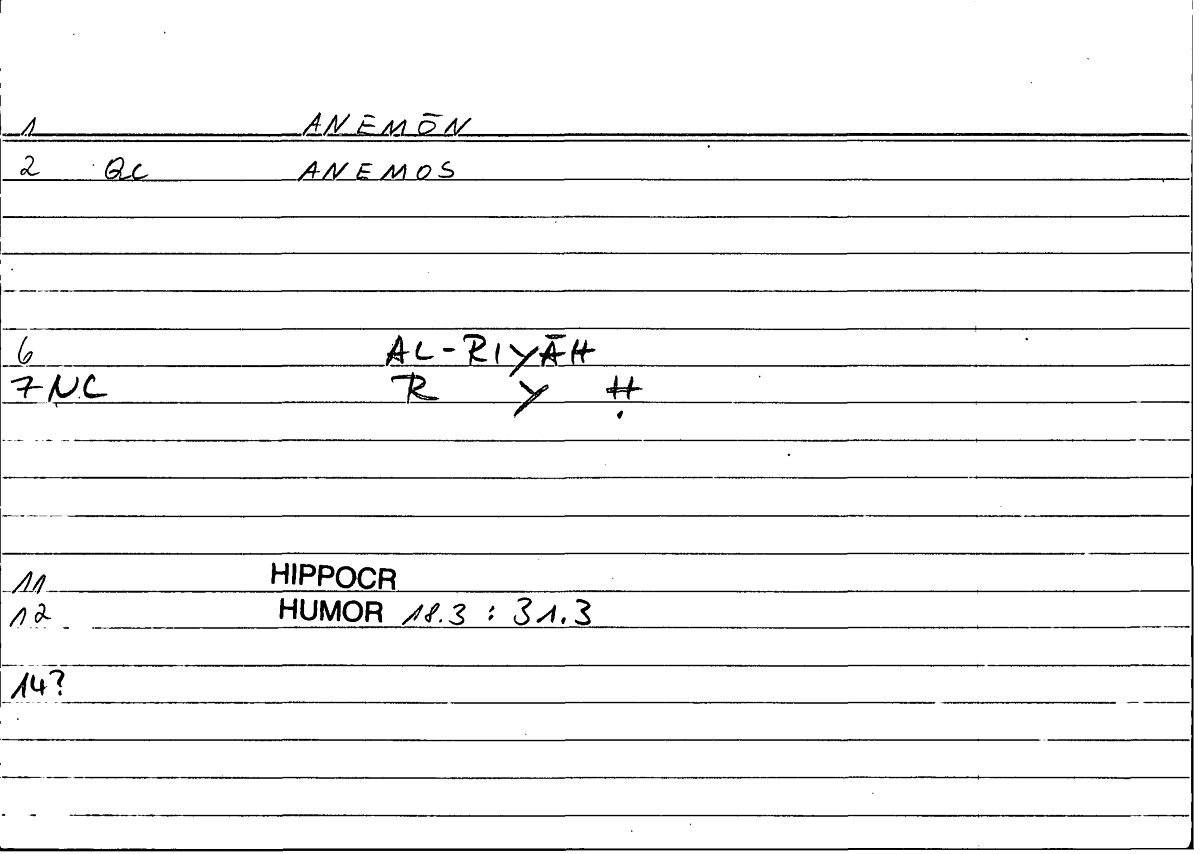 1 ANEMŌN
2 QC ANEMOS
6 AL-RIYĀH
7 NC R Y Ḥ
11 HIPPOCR
12 HUMOR 18.3 : 31.3
14?